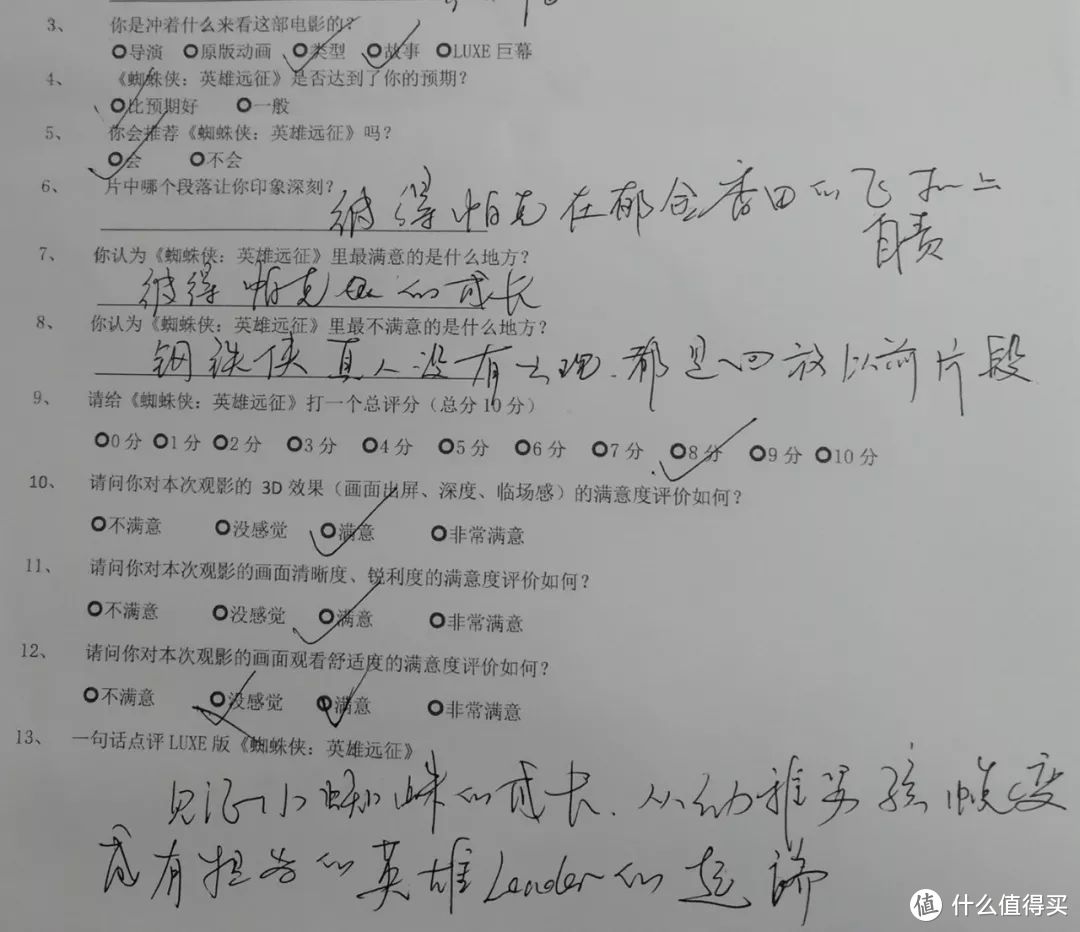 3、 你是冲着什么来看这部电影的？
导演 原版动画 类型 故事 LUXE 巨幕
4、 《蜘蛛侠：英雄远征》是否达到了你的预期？
比预期好 一般
5、 你会推荐《蜘蛛侠：英雄远征》吗？
会 不会
6、 片中哪个段落让你印象深刻？
彼得帕克在郁金香田的飞机上
自责
7、 你认为《蜘蛛侠：英雄远征》里最满意的是什么地方？
彼得帕克 的成长
8、 你认为《蜘蛛侠：英雄远征》里最不满意的是什么地方？
钢铁侠真人没有出现.都是回放以前片段
9、 请给《蜘蛛侠：英雄远征》打一个总评分（总分 10 分）
0 分 1 分 2 分 3 分 4 分 5 分 6 分 7 分 8 分 9 分 10 分
10、 请问你对本次观影的 3D 效果（画面出屏、深度、临场感）的满意度评价如何？
不满意 没感觉 满意 非常满意
11、 请问你对本次观影的画面清晰度、锐利度的满意度评价如何？
不满意 没感觉 满意 非常满意
12、 请问你对本次观影的画面观看舒适度的满意度评价如何？
不满意 没感觉 满意 非常满意
13、 一句话点评 LUXE 版《蜘蛛侠：英雄远征》
见证小蜘蛛的成长.从幼稚男孩 变
成有担当的英雄Leader的
值 什么值得买